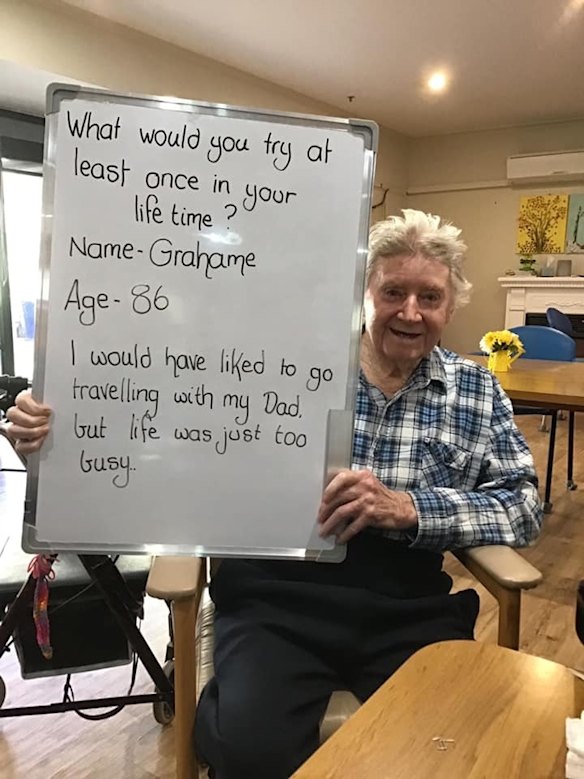 What would you try at
least once in your
life time ?
Name - Grahame
Age - 86
I would have liked to go
travelling with my Dad,
but life was just too
busy..